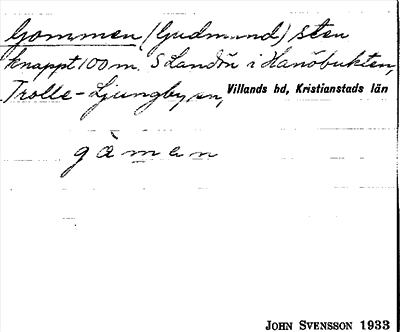 Gommen (Gudmund) sten
knappt 100 m. S Landön i Hanöbukten,
Trolle-Ljungby sn, Villands hd, Kristianstads län
gàmen
JOHN SVENSSON 1933